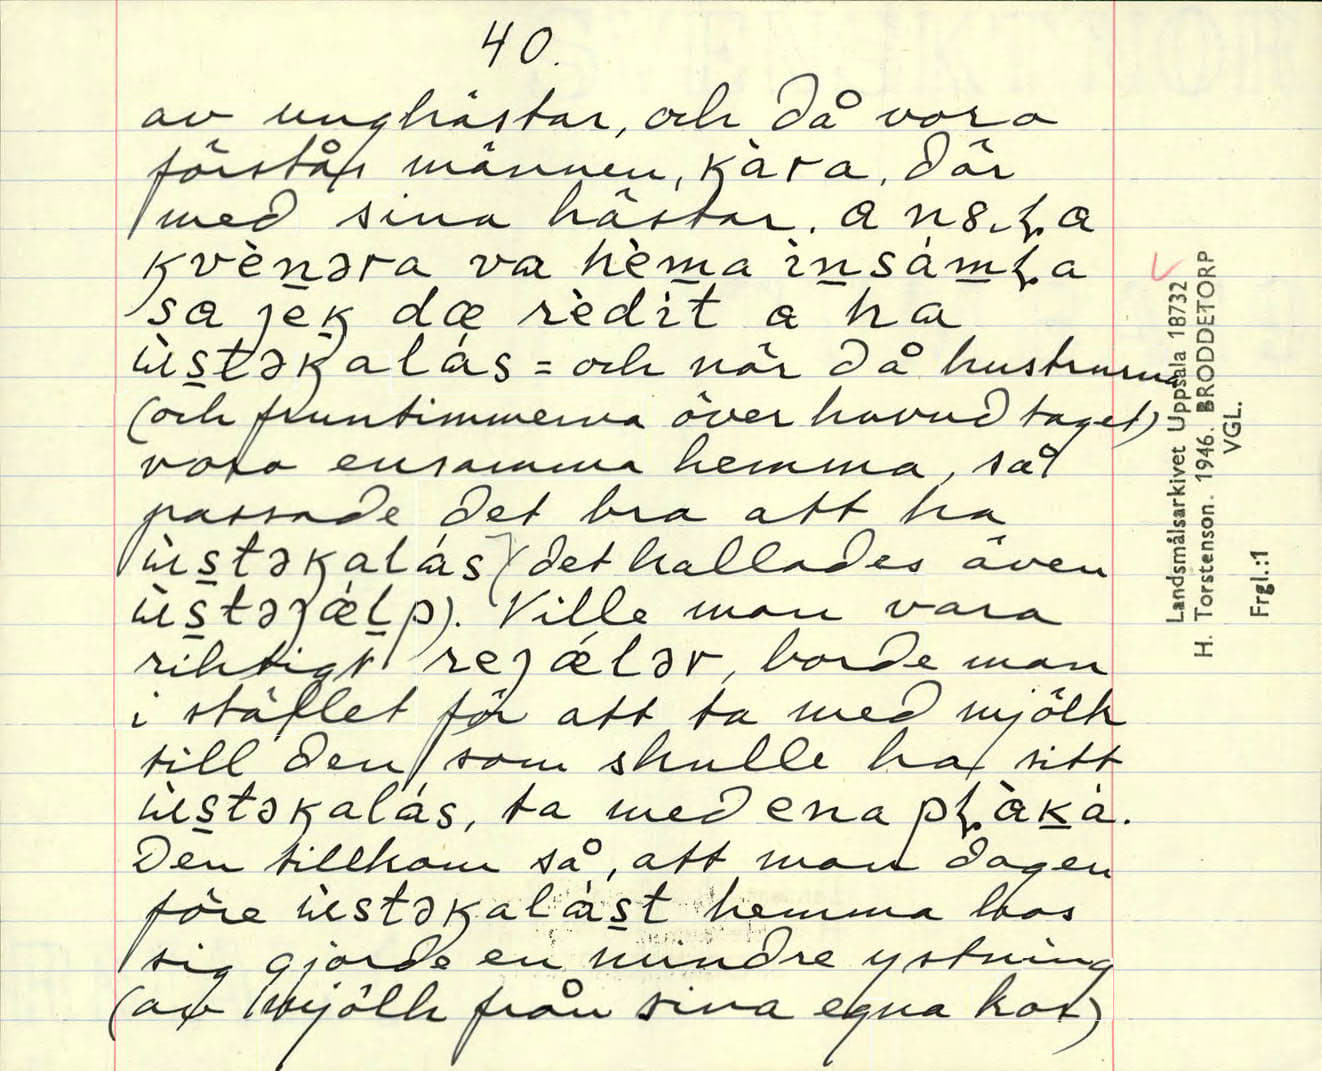 40.
av unghästar, och då voro
förstås männen, kàra, där
med sina hästar. a nɞ ɂa
kvèn̲əra va hèm̲a ìn̲sám̲ɂa
sa ȷek dæ rèdit a ha
ùs̲təkalás = och när då hustrurna
(och fruntimmerna över huvud taget)
voro ensamma hemma, så
passade det bra att ha
ùs̲təkalás (det kallades även
ùs̲təȷǽl̲p). Ville man vara
riktigt reȷǽlər, borde man
i stället för att ta med mjölk
till den som skulle ha sitt
ùs̲təkalás, ta med ena pɂàk̲á.
Den tillkom så, att man dagen
före ùstəkalás̲t hemma hos
sig gjorde en mindre ystning
(av mjölk från sina egna kor)
Landsmålsarkivet Uppsala 18732
H. Torstenson. 1946. BRODDETORP
VGL.
Frgl.:1